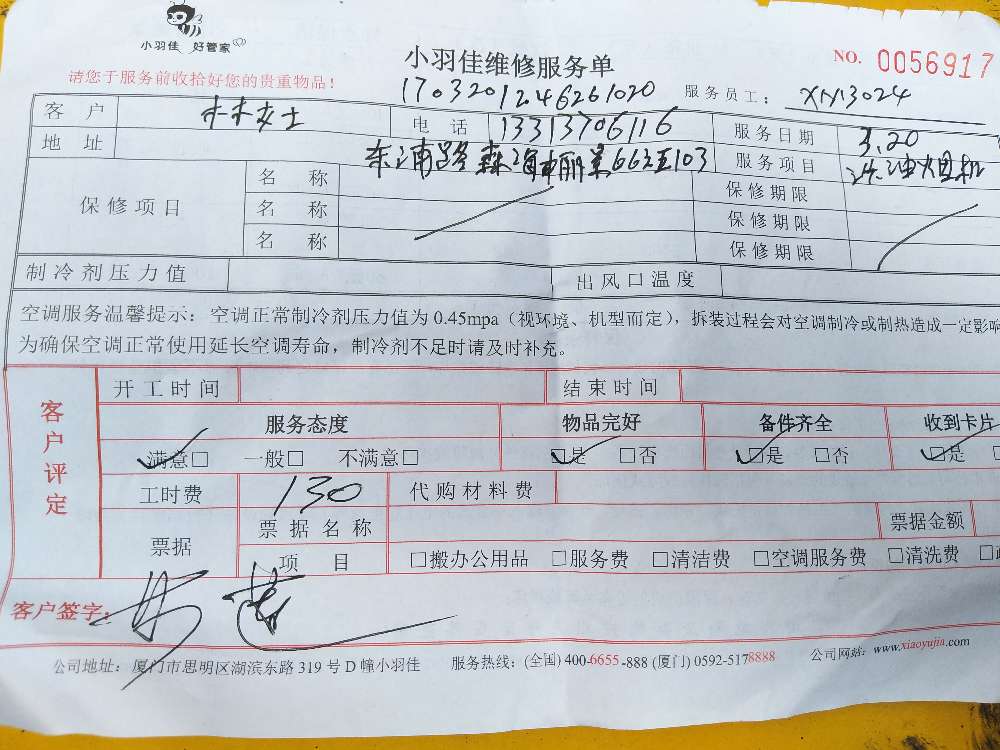 小羽佳 好管家
小羽佳维修服务单
NO. 0056917
请您于服务前收拾好您的贵重物品！
1703201246261020
服务员工： XM13024
客户 林女士 电话 13313706116 服务日期 3.20
地址 663至103 服务项目 洗油烟机
保修项目
名称 保修期限
名称 保修期限
名称 保修期限
制冷剂压力值 出风口温度
空调服务温馨提示：空调正常制冷剂压力值为0.45mpa（视环境、机型而定），拆装过程会对空调制冷或制热造成一定影响
为确保空调正常使用延长空调寿命，制冷剂不足时请及时补充。
客户评定
开工时间 结束时间
服务态度 物品完好 备件齐全 收到卡片
满意□ 一般□ 不满意□ □是 □否 □是 □否 □是
工时费 130 代购材料费
票据 票据名称 票据金额
项目 □搬办公用品 □服务费 □清洁费 □空调服务费 □清洗费
客户签字：
公司地址：厦门市思明区湖滨东路319号D幢小羽佳 服务热线：(全国) 400-6655-888 (厦门) 0592-5178888 公司网站：www.xiaoyujia.com